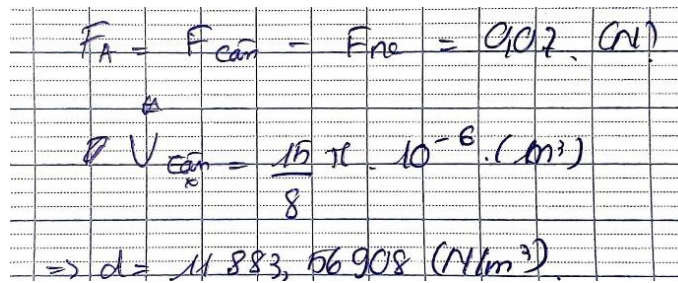 F_A = F_cân - F_ne = 0,07. (N)
V_cân = 15/8 π . 10^-6 . (m³)
=> d = 11 883, 56 908 (N/m³)